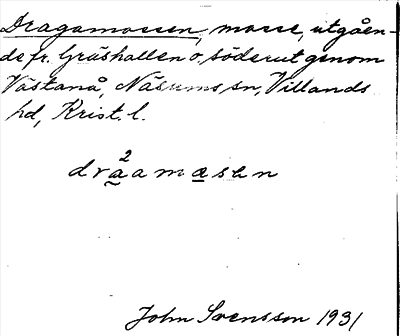 Dragamossen, mosse, utgåen-
de fr. Gräshallen o. söderut genom
Västanå, Näsums sn, Villands
hd, Krist. l.
2
dråamosen
John Svensson 1931